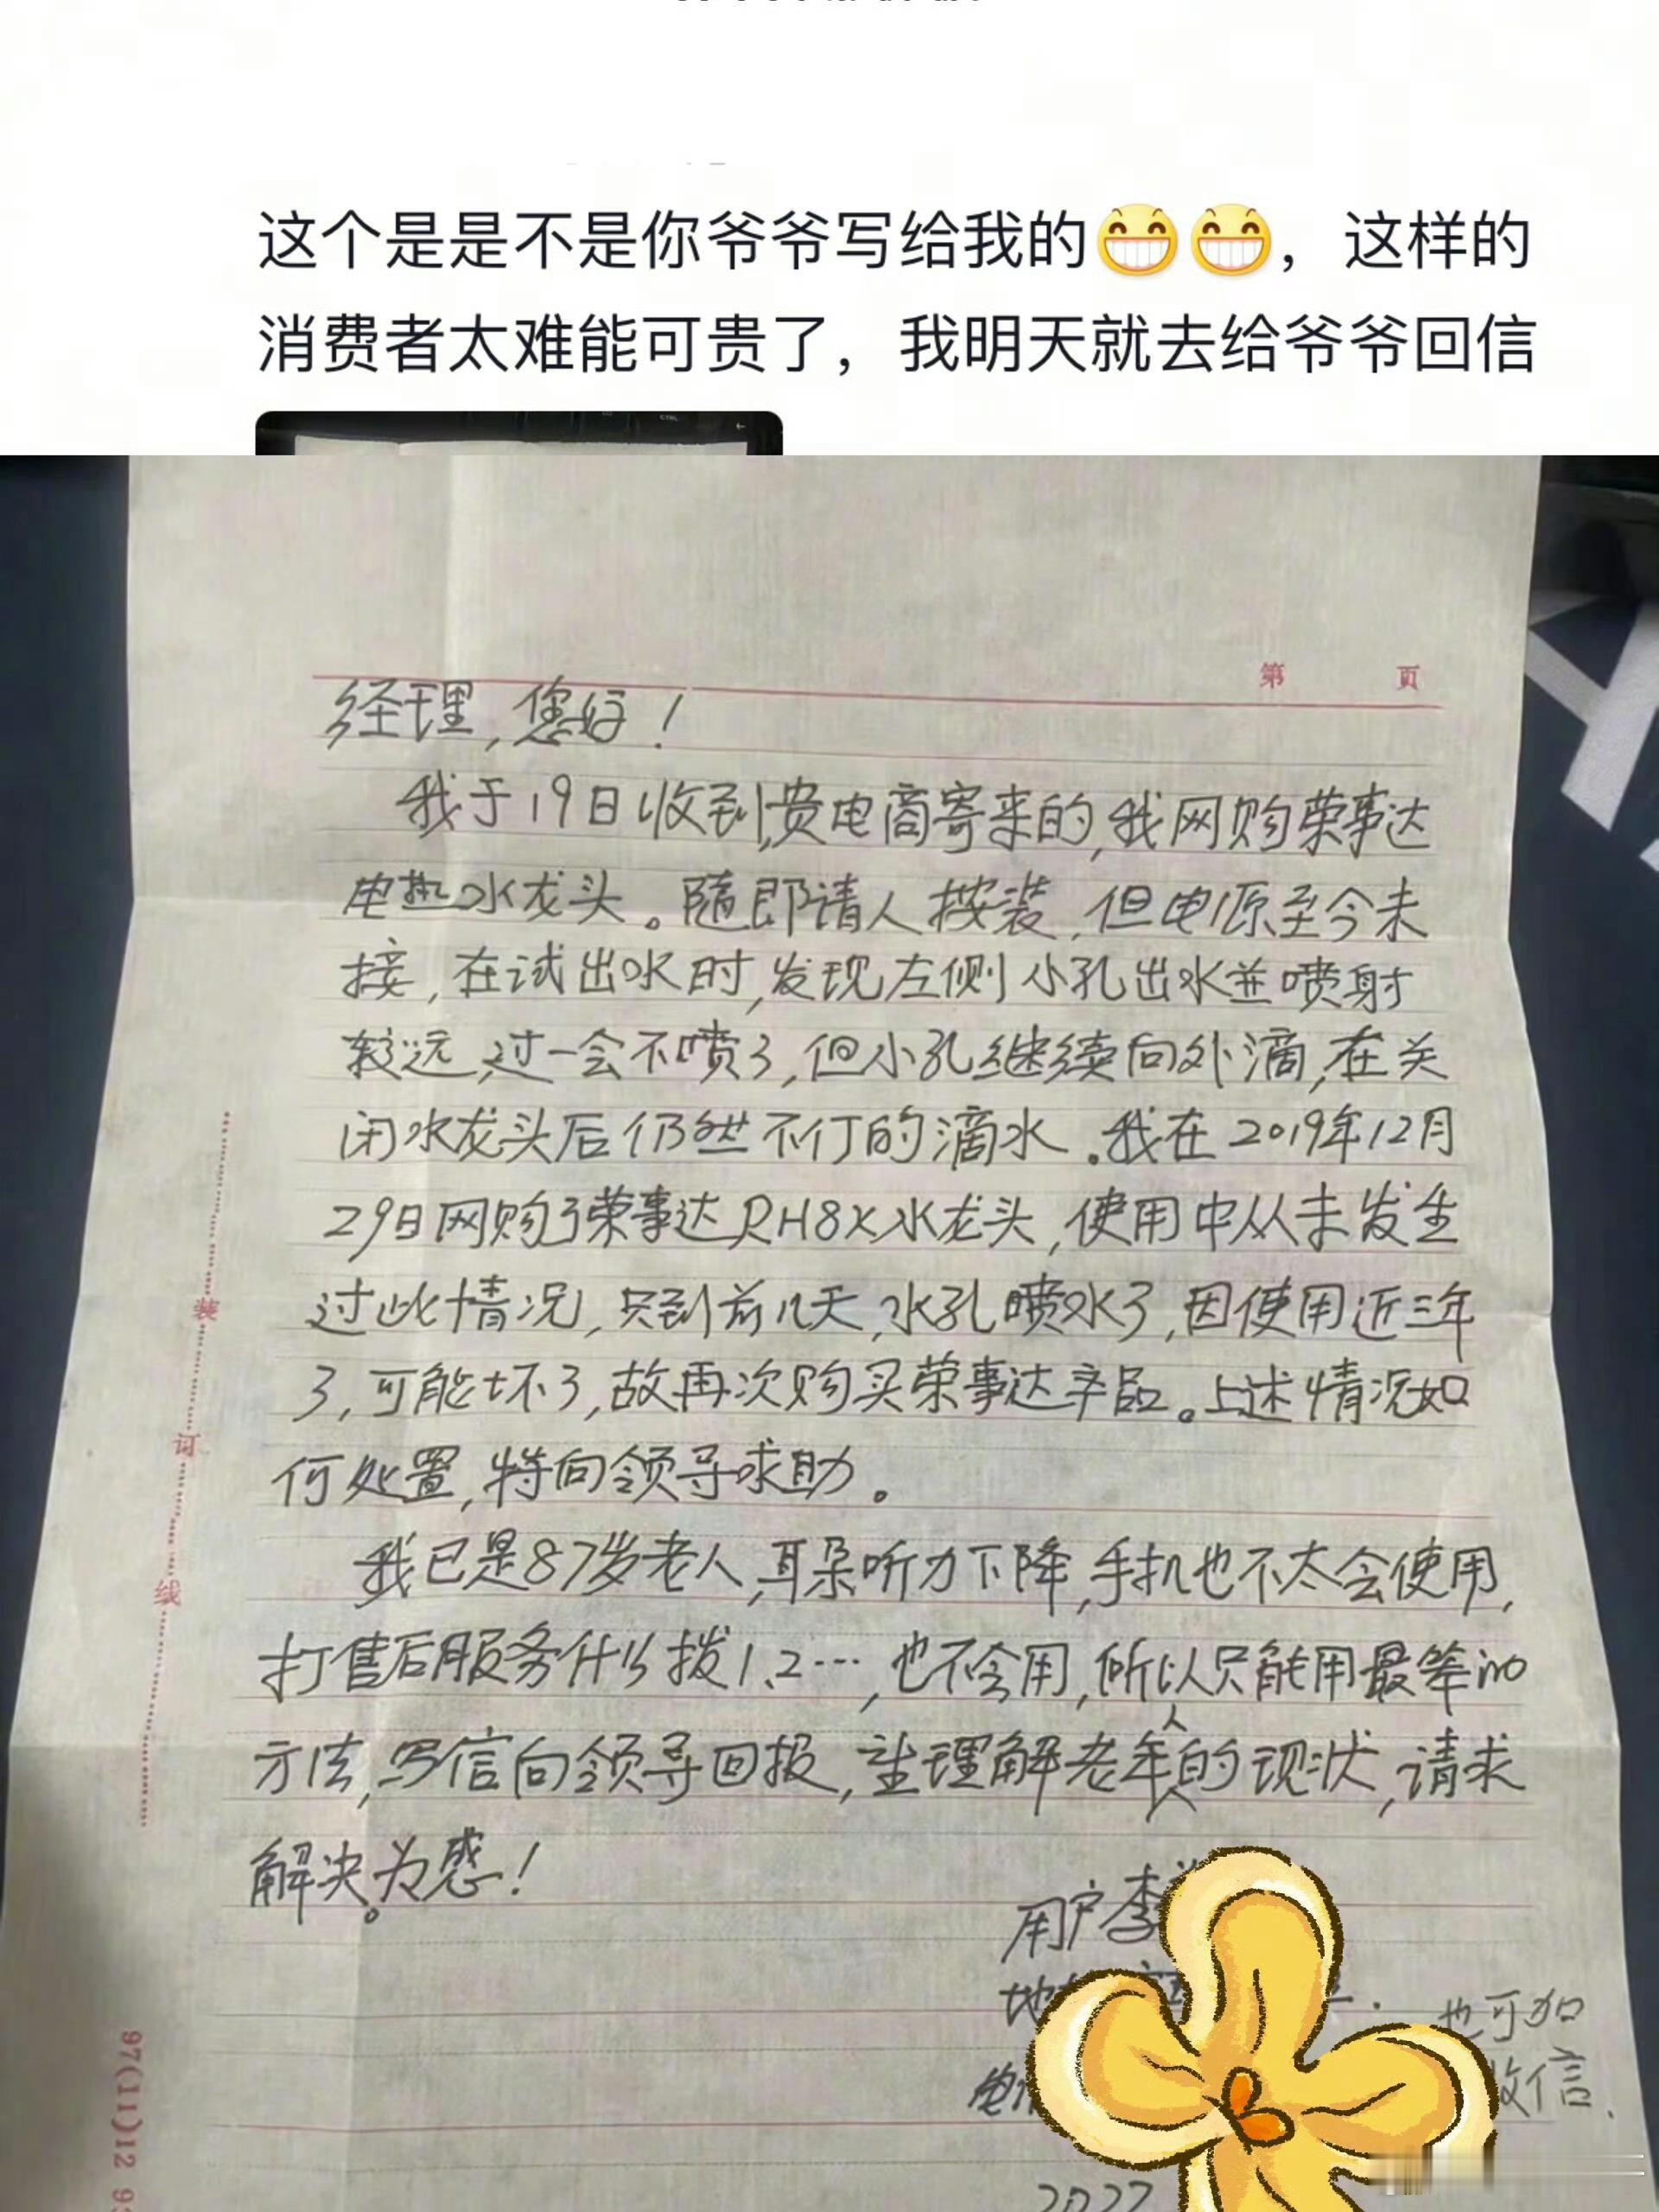 这个是是不是你爷爷写给我的😁😁，这样的
消费者太难能可贵了，我明天就去给爷爷回信
第 页
经理,您好!
我于19日收到,贵电商寄来的,我网购荣事达
电热水龙头。随即请人按装,但电源至今未
接,在试出水时,发现左侧小孔出水並喷射
较远,过一会不喷了,但小孔继续向外滴,在关
闭水龙头后仍然不仃的滴水.我在2019年12月
29日网购了荣事达RH8X水龙头,使用中从未发生
过此情况,只到前几天,水孔喷水了,因使用近三年
了,可能坏了,故再次购买荣事达产品。上述情况如
何处置,特向领导求助。
我已是87岁老人,耳朵听力下降,手机也不太会使用,
打售后服务什么拨1、2…,也不会用,所以只能用最笨的
方法,写信向领导回报,望理解老年人的现状,请求
解决。为感!
用户李
地
也可加
电
收信.
2022
装
订
线
97(11)12